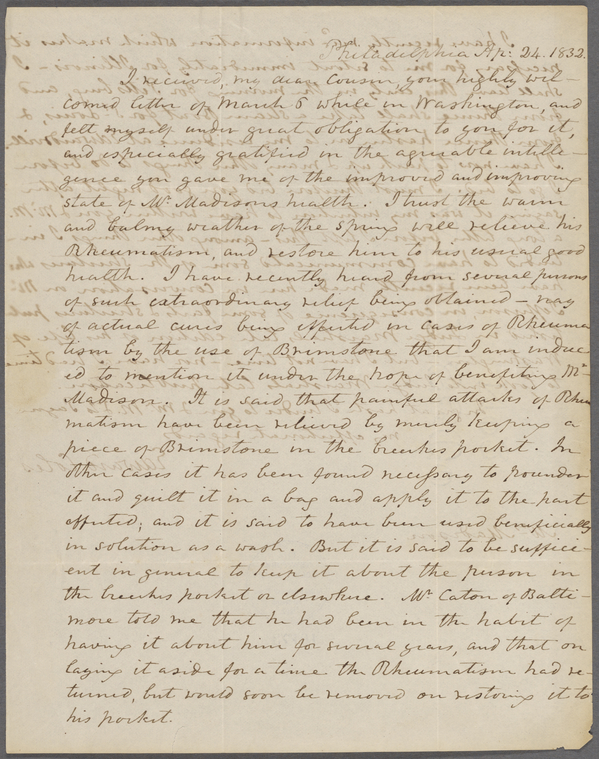 Philadelphia Ap: 24. 1832.
I received, my dear Cousin, your highly wel-
comed letter of March 5 while in Washington, and
felt myself under great obligation to you for it,
and especially gratified in the agreeable intelli-
gence you gave me of the improved and improving
state of Mr Madisons health. I trust the warm
and balmy weather of the spring will relieve his
Rheumatism, and restore him to his usual good
health. I have recently heard from several persons
of such extraordinary relief being obtained – nay
of actual cures being effected in cases of Rheuma
tism by the use of Brimstone that I am induc-
ed to mention it under the hope of benefiting Mr
Madison. It is said that painful attacks of Rheu
matism have been relieved by merely keeping a
piece of Brimstone in the breeches pocket. In
other cases it has been found necessary to pounder
it and quilt it in a bag and apply it to the part
affected; and it is said to have been used beneficially
in solution as a wash. But it is said to be suffici-
ent in general to keep it about the person in
the breeches pocket or elsewhere. Mr Caton of Balti-
more told me that he had been in the habit of
having it about him for several years, and that on
laying it aside for a time the Rheumatism had re-
turned, but would soon be removed on restoring it to
his pocket.